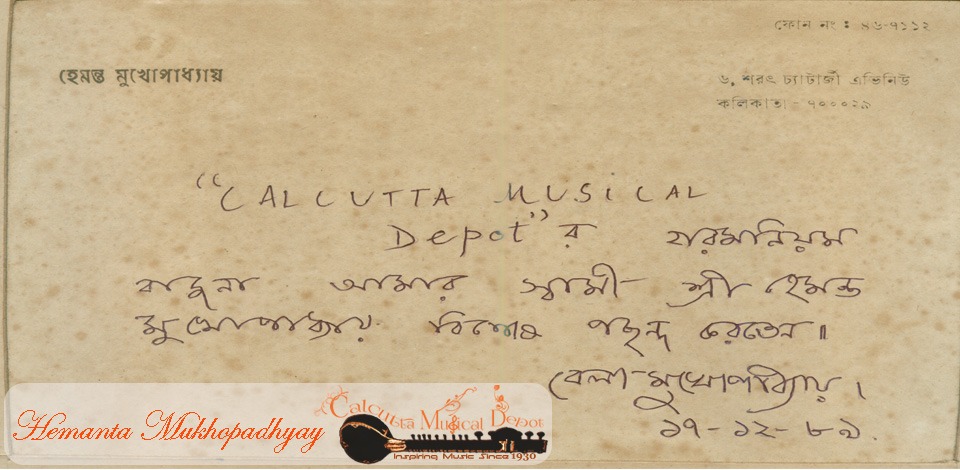 ফোন নং : ৪৬-৭১১২
হেমন্ত মুখোপাধ্যায়
৬, শরৎ চ্যাটার্জী এভিনিউ
কলিকাতা - ৭০০০২৯
“CALCUTTA MUSICAL
Depot”র হারমানিয়ম
বাজনা আমার স্বামী শ্রী হেমন্ত
মুখোপাধ্যায় বিশেষ পছন্দ করতেন॥
বেলা মুখোপাধ্যায়।
১৭-১২-৮৯.
Hemanta Mukhopadhyay
Calcutta Musical Depot
Inspiring Music Since 1930